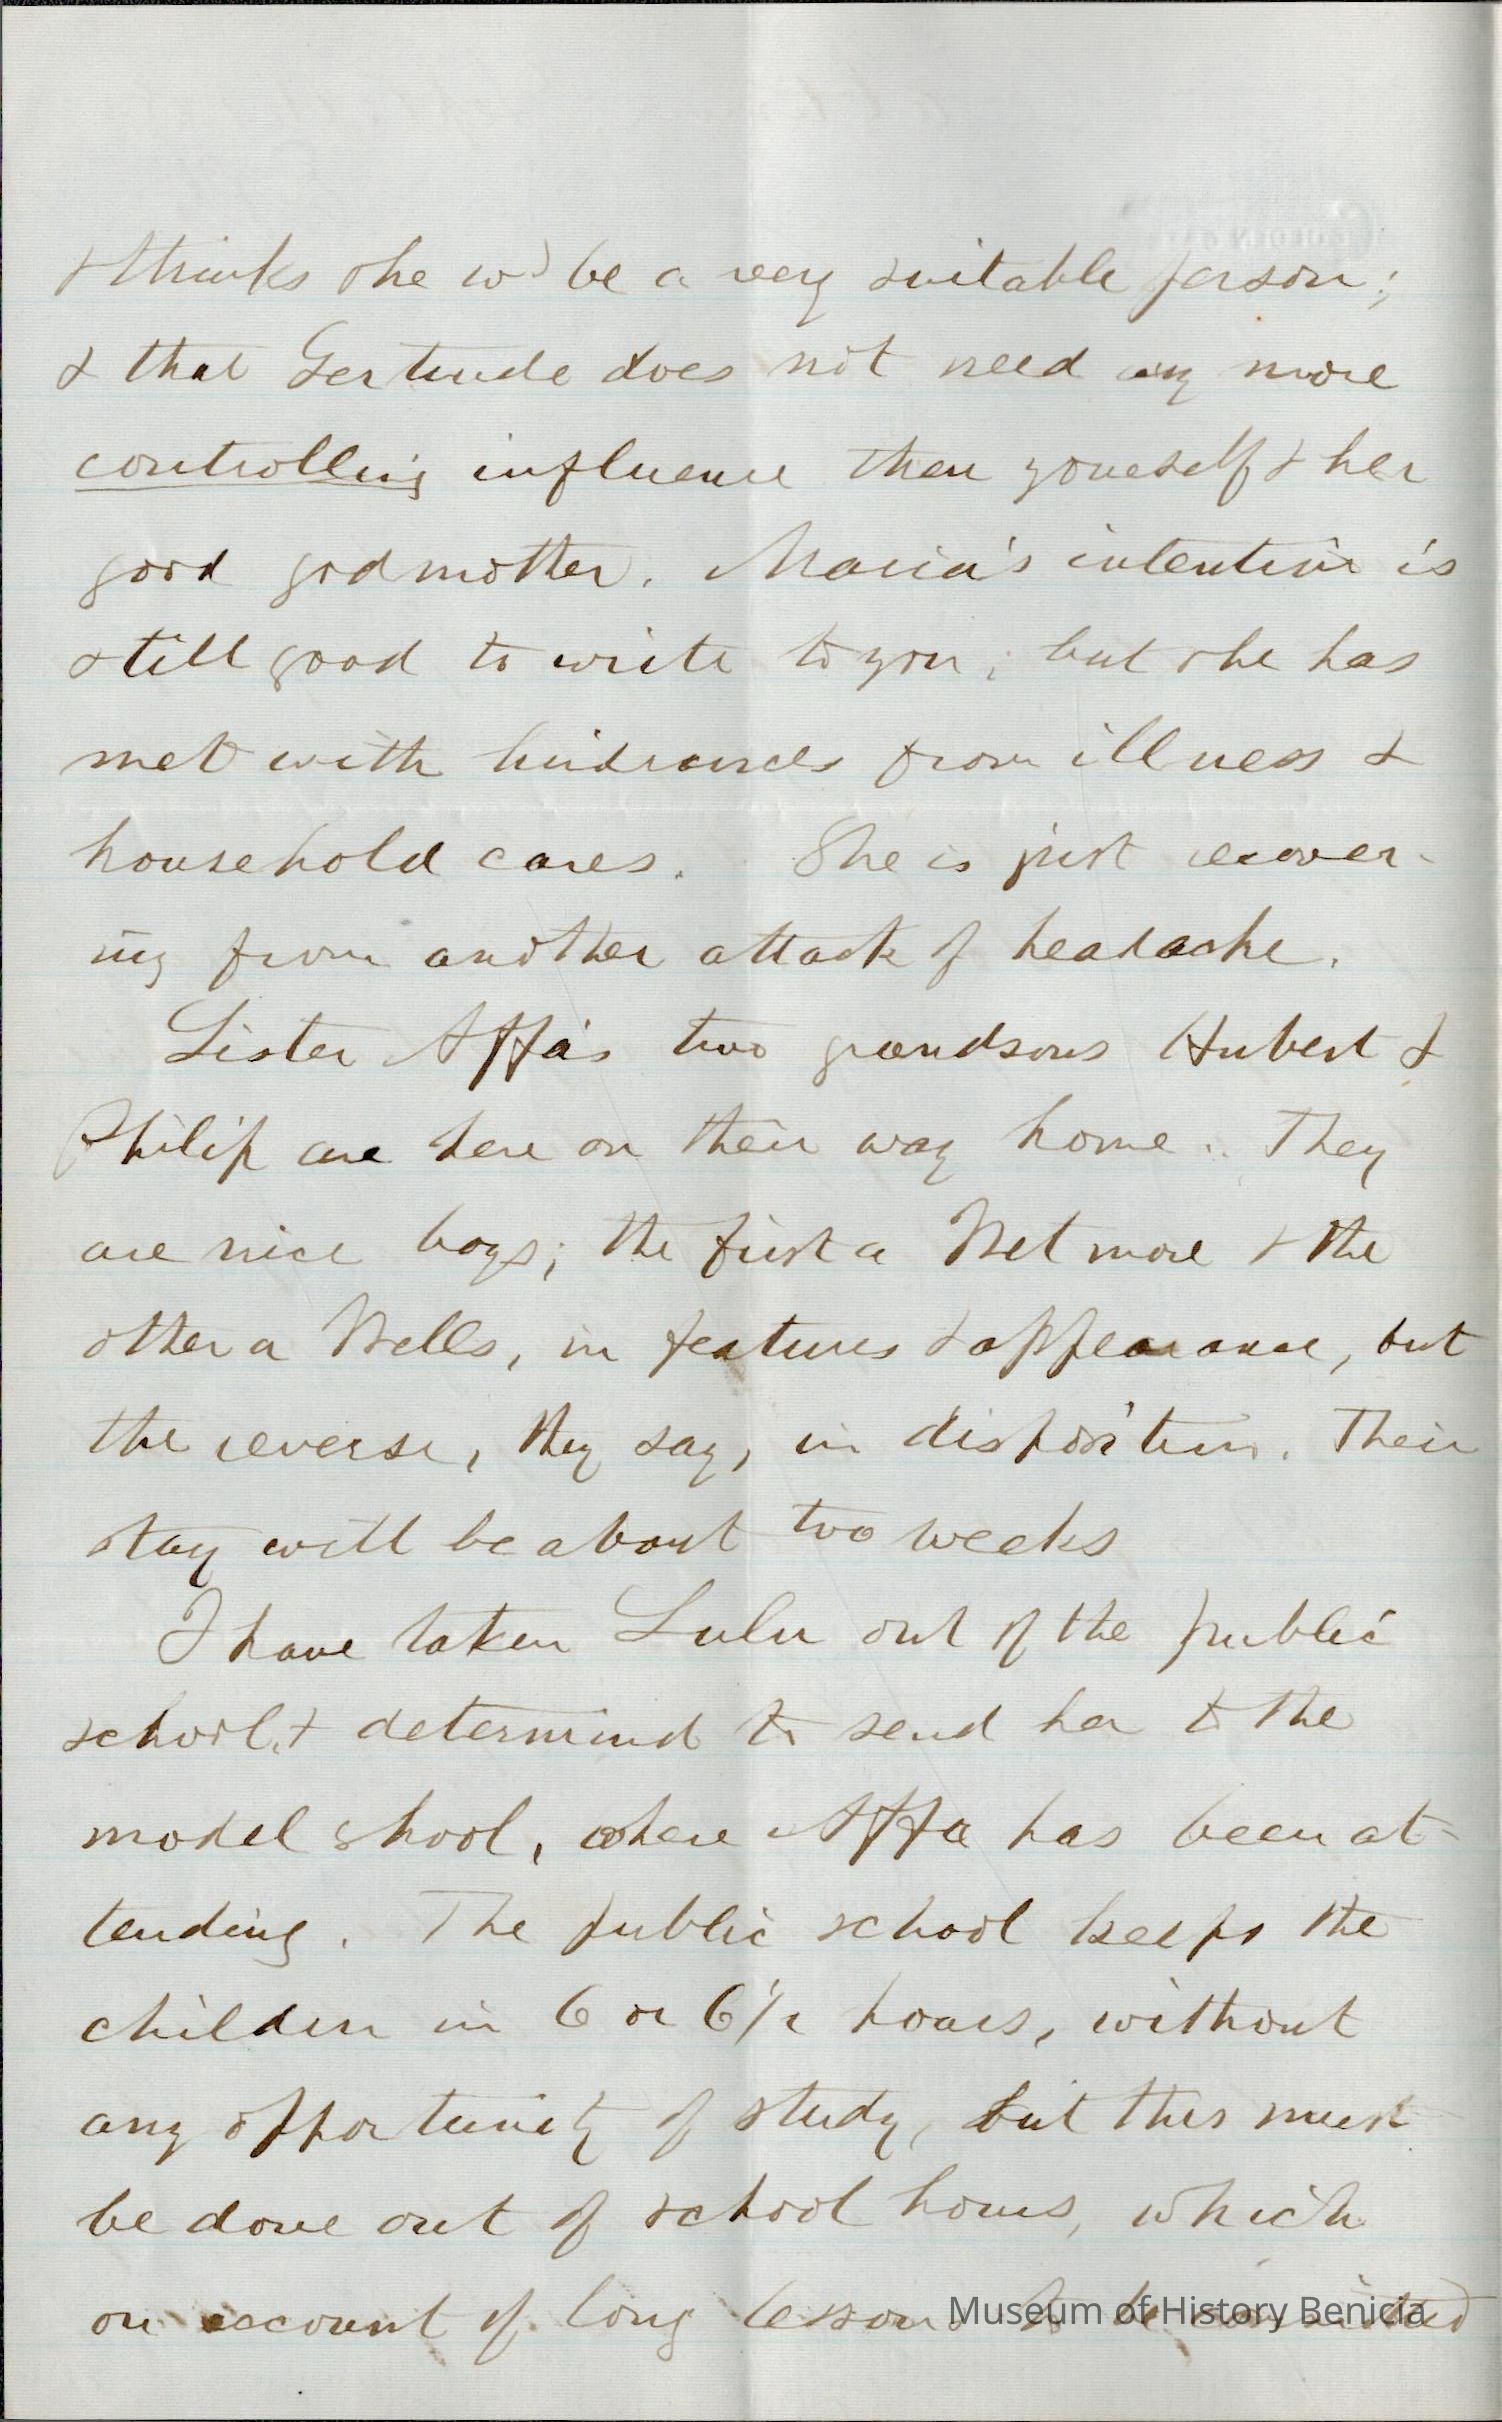 & thinks she wd be a very suitable person;
& that Gertrude does not need any more
controlling influence than yourself & her
good godmother. Maria's intention is
still good to write to you; but she has
met with hindrances from illness &
household cares. She is just recover-
ing from another attack of headache.
Sister Affa's two grandsons Hubert &
Philip are here on their way home. They
are nice boys; the first a Wetmore & the
other a Wells, in features & appearance, but
the reverse, they say, in disposition. Their
stay will be about two weeks
I have taken Lulu out of the public
school, & determind to send her to the
model shool, where Affa has been at-
tending. The public school keeps the
children in 6 or 6 1/2 hours, without
any opportunity of study, but this must
be done out of school hours, which
on account of long lessons to be
Museum of History Benicia